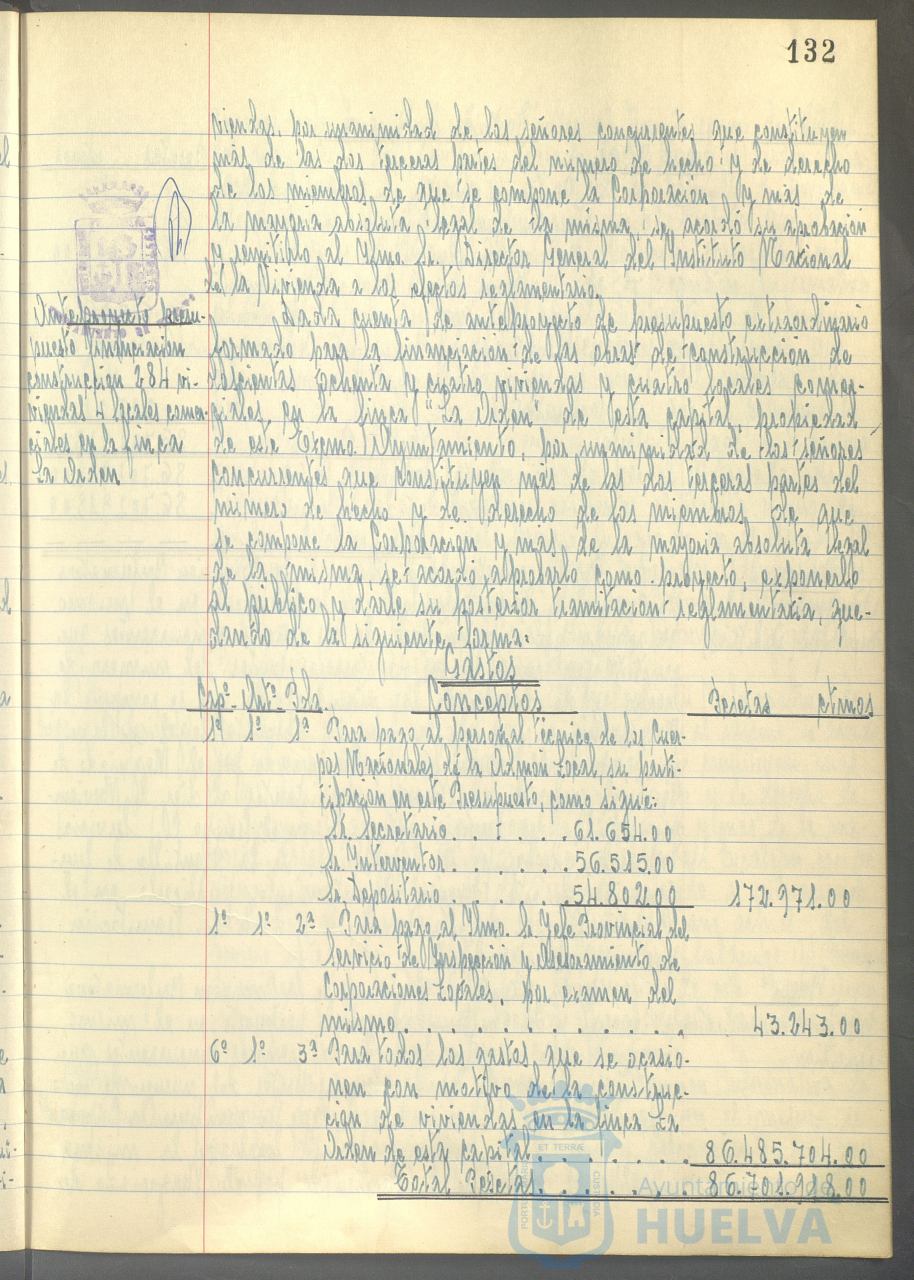 132
viendas, por unanimidad de los señores concurrentes que constituyen
más de las dos terceras partes del número de hecho y de derecho
de los miembros de que se compone la Corporación y más de
la mayoría absoluta legal de la misma, se acordó su aprobación
y remitirlo al Iltmo. Sr. Director General del Instituto Nacional
de la Vivienda a los efectos reglamentario.
Anteproyecto
puesto financiación
construccion 284 vi-
viendas 4 locales comer-
ciales en la finca
La Orden
Dada cuenta de anteproyecto de presupuesto extraordinario
formado para la financiacion de las obras de construccion de
doscientas ochenta y cuatro viviendas y cuatro locales comer-
ciales, en la finca "La Orden" de esta capital, propiedad
de este Excmo. Ayuntamiento, por unanimidad de los señores
concurrentes que constituyen más de las dos terceras partes del
número de hecho y de derecho de los miembros de que
se compone la Corporación y más de la mayoría absoluta legal
de la misma, se acordó, aprobarlo como proyecto, exponerlo
al público, y darle su posterior tramitacion reglamentaria, que-
dando de la siguiente forma:
Gastos
Capº. Artº. Pda. Conceptos Pesetas ctmos
1º 1º 1ª Para pago al personal técnico de los Cuer-
pos Nacionales de la Admón Local, su parti-
cipacion en este Presupuesto, como sigue:
Sr. Secretario . . . . . 61.654.00
Sr. Interventor . . . . . 56.515.00
Sr. Depositario . . . . . 54.802.00 172.971.00
1º 1º 2ª Para pago al Iltmo. Sr. Jefe Provincial del
Servicio de Inspección y Asesoramiento de
Corporaciones Locales, por examen del
mismo . . . . . . . . . . . 43.243.00
6º 1º 3ª Para todos los gastos que se ocasio-
nen con motivo de la construc-
ción de viviendas en la finca La
Orden de esta capital . . . . . . 86.485.704.00
Total Pesetas . . . . . . 86.701.918.00
ET TERRÆ
CUSTODIA
Ayuntamiento de
HUELVA